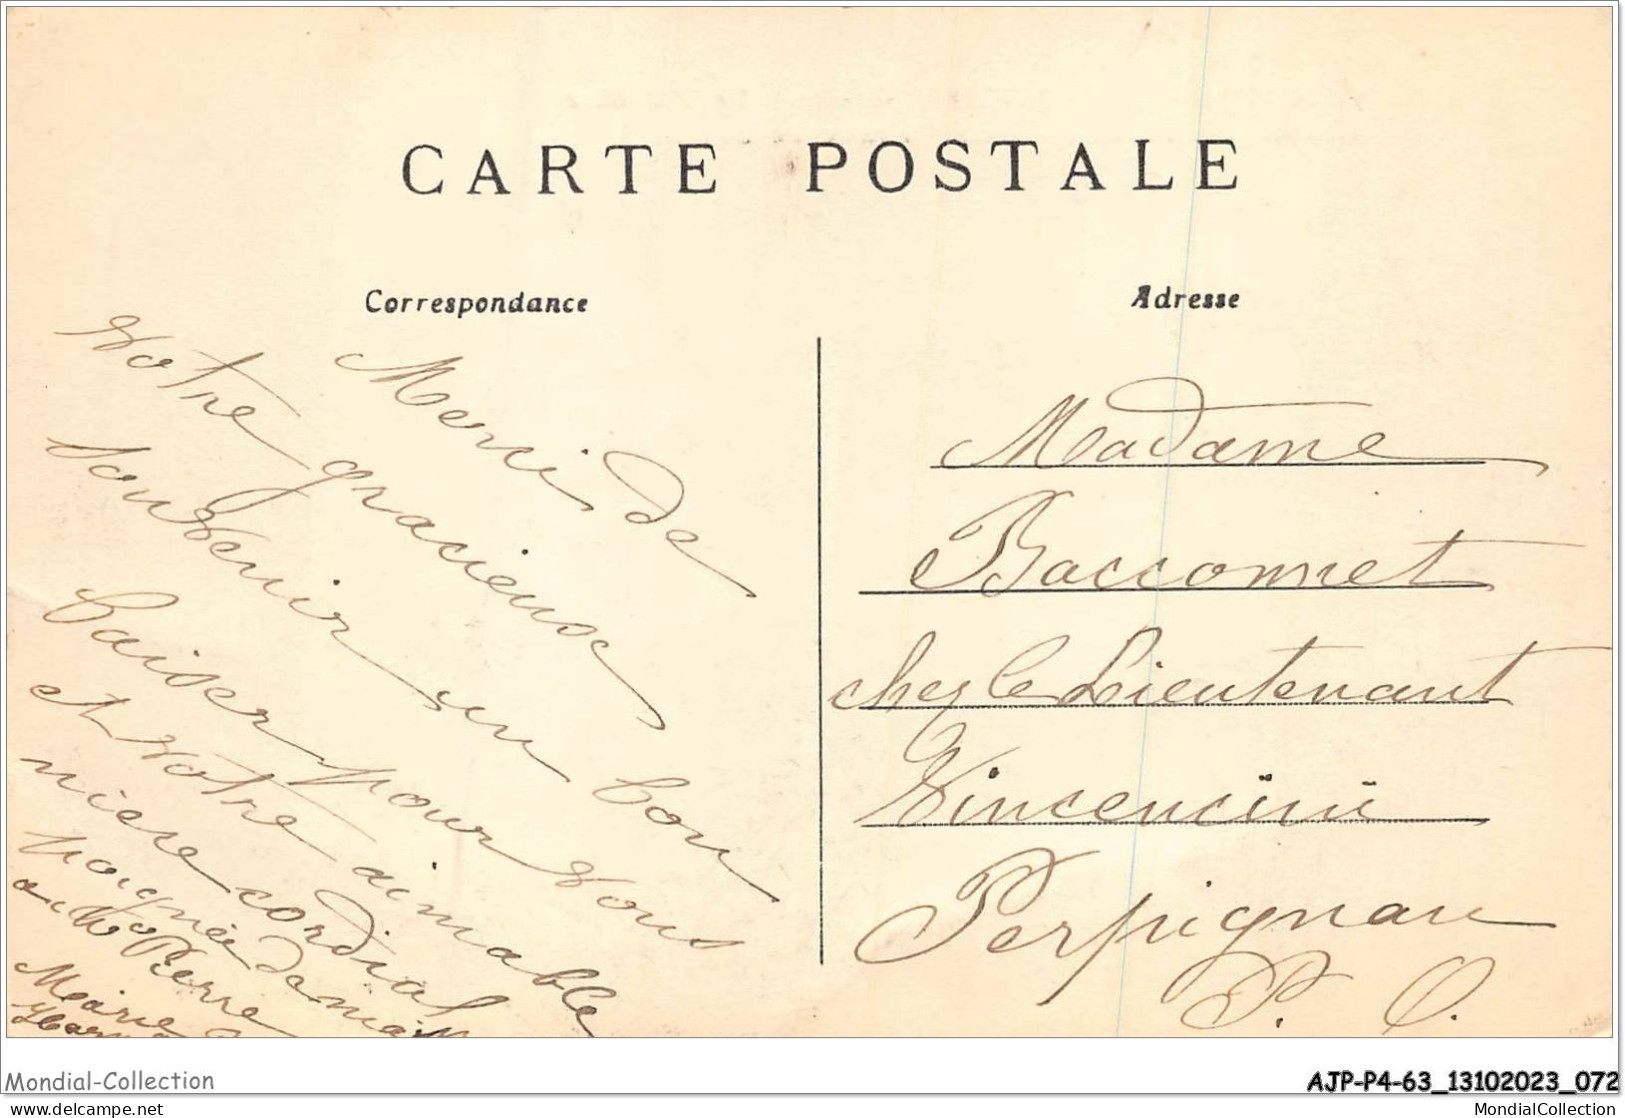 CARTE POSTALE
Correspondance
Merci de
votre gracieuse
souvenir un bon
baiser pour vous
et votre aimable
nièce cordial
poignée de main
a Mr Pierre
Marie
Adresse
Madame
Bacconnet
chez le Lieutenant
Vincencini
Perpignan
P. O.
Mondial-Collection
AJP-P4-63_13102023_072
delcampe.net
MondialCollection